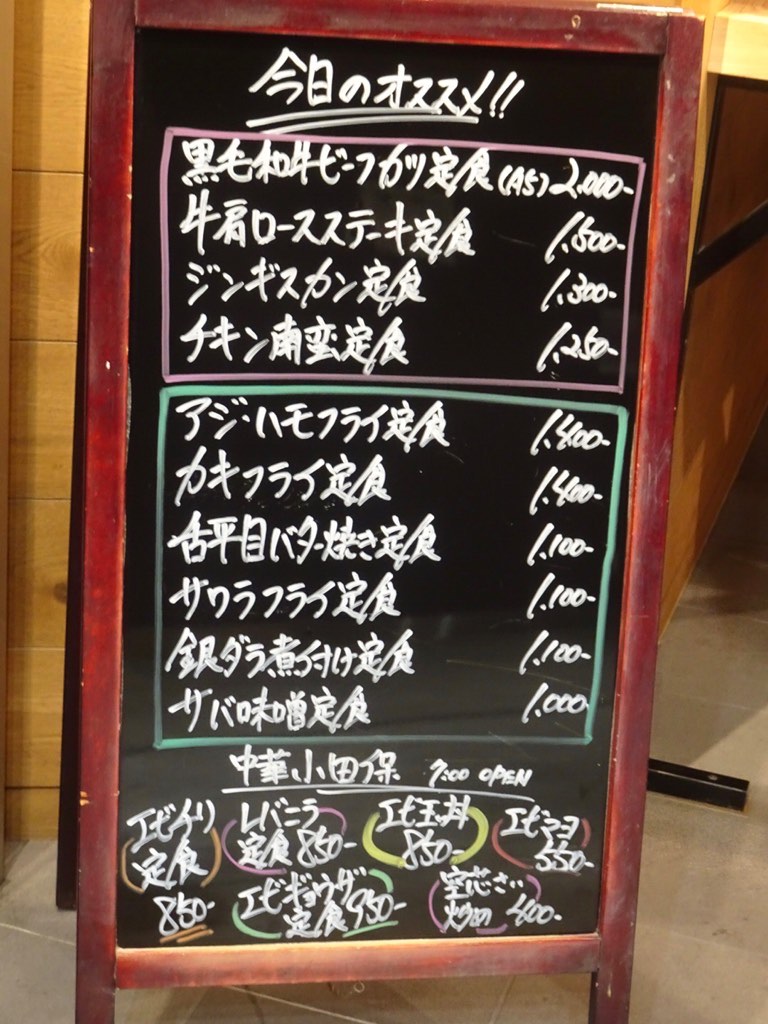 今日のオススメ!!
黒毛和牛ビーフカツ定食(A5) 2,000-
牛肩ロースステーキ定食 1,500-
ジンギスカン定食 1,300-
チキン南蛮定食 1,250-
アジ・ハモフライ定食 1,400-
カキフライ定食 1,400-
舌平目バター焼き定食 1,100-
サワラフライ定食 1,100-
銀ダラ煮付け定食 1,100-
サバ味噌定食 1,000-
中華小田保 7:00 OPEN
エビチリ
定食
850-
レバニラ
定食 850-
エビ玉丼
850-
エビマヨ
550-
エビギョウザ
定食 950-
空芯さい
炒め 400-